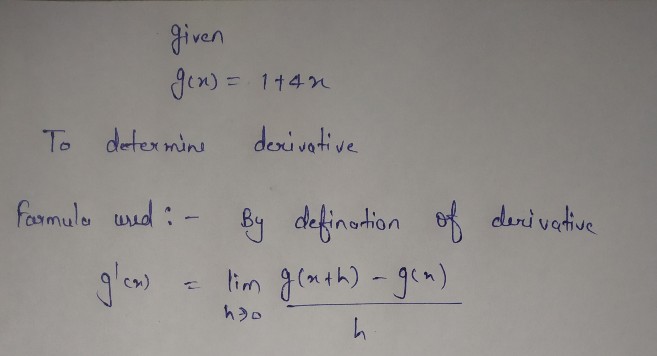 given
g(x) = 1+4x
To determine derivative
Formula used :- By defination of derivative
g'(x) = lim h→0 g(x+h) - g(x) / h